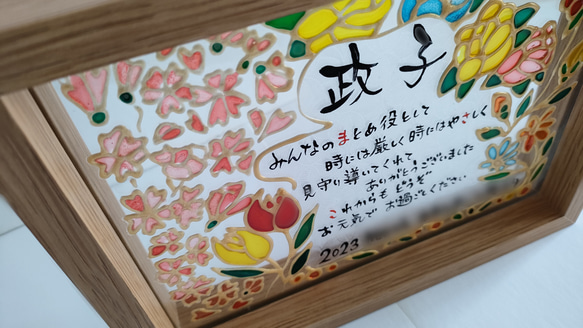 政子
みんなのまとめ役として
時には厳しく時にはやさしく
見守り導いてくれて
ありがとうございました
これからもどうぞ
お元気でお過ごしください
2023